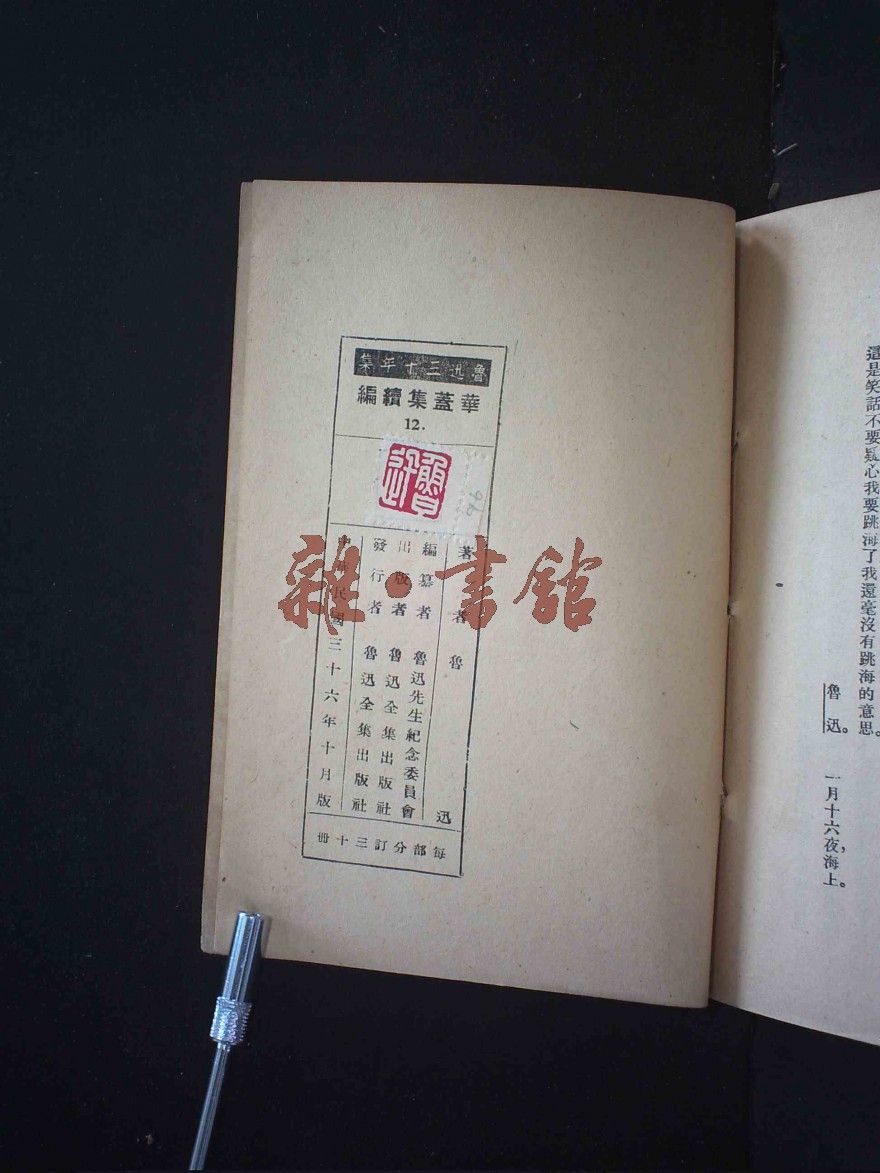 這是笑話不要疑心我要跳海了我還毫沒有跳海的意思。
魯迅。
一月十六夜，海上。
魯迅三十年集
華蓋集續編
12.
魯迅
96
著者 魯迅
編纂者 魯迅先生紀念委員會
出版者 魯迅全集出版社
發行者 魯迅全集出版社
中華民國三十六年十月版
每部分訂三十冊
雜·書館